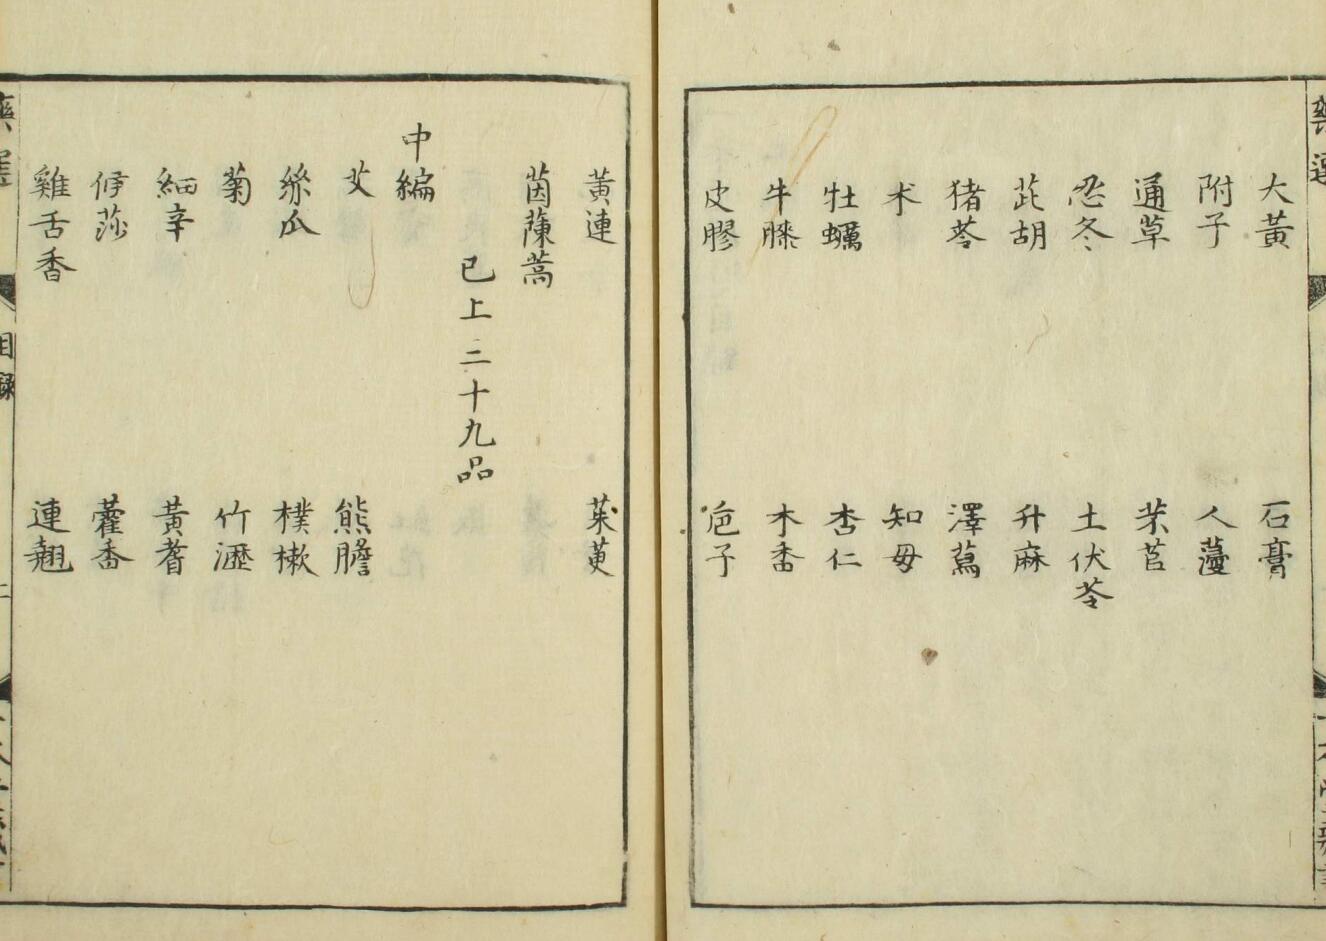 大黃 石膏
附子 人薓
通草 芣苢
忍冬 土伏苓
茈胡 升麻
猪苓 澤蕮
朮 知毋
牡蠣 杏仁
牛膝 木香
皮膠 巵子
黃連 茱萸
茵蔯蒿
已上二十九品
中編
艾 熊膽
絲瓜 樸樕
菊 竹瀝
細辛 黃耆
侾莎 藿香
雞舌香 連翹
目録